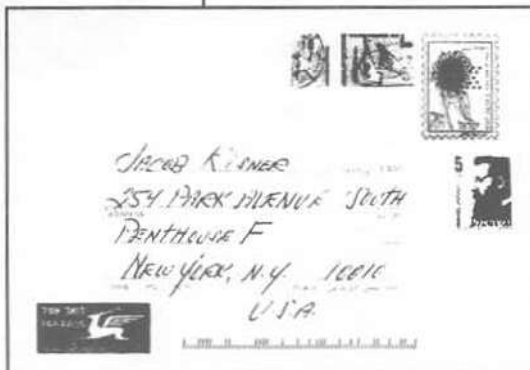 5
JACOB KISNER
254 PARK AVENUE SOUTH
PENTHOUSE F
NEW YORK, N.Y. 10010
U.S.A.